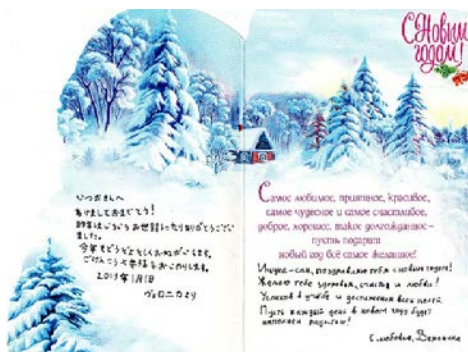 С Новым
годом!
いつおさんへ
あけましておめでとう!
昨年はいろいろお世話になりありがとうござい
ました。
今年もどうぞよろしくおねがいします。
ごけんこうと幸福をおいのりします。
2019年1月1日
ヴェロニカより
Самое любимое, приятное, красивое,
самое чудесное и самое счастливое,
доброе, хорошее, такое долгожданное –
пусть подарит
новый год всё самое желанное!
-сан, поздравляю тебя с новым годом!
Желаю тебе здоровья, счастья и любви!
Успехов в учёбе и достижения всех целей.
Пусть каждый день в новом году будет
наполнен радостью!
С любовью, Вероника